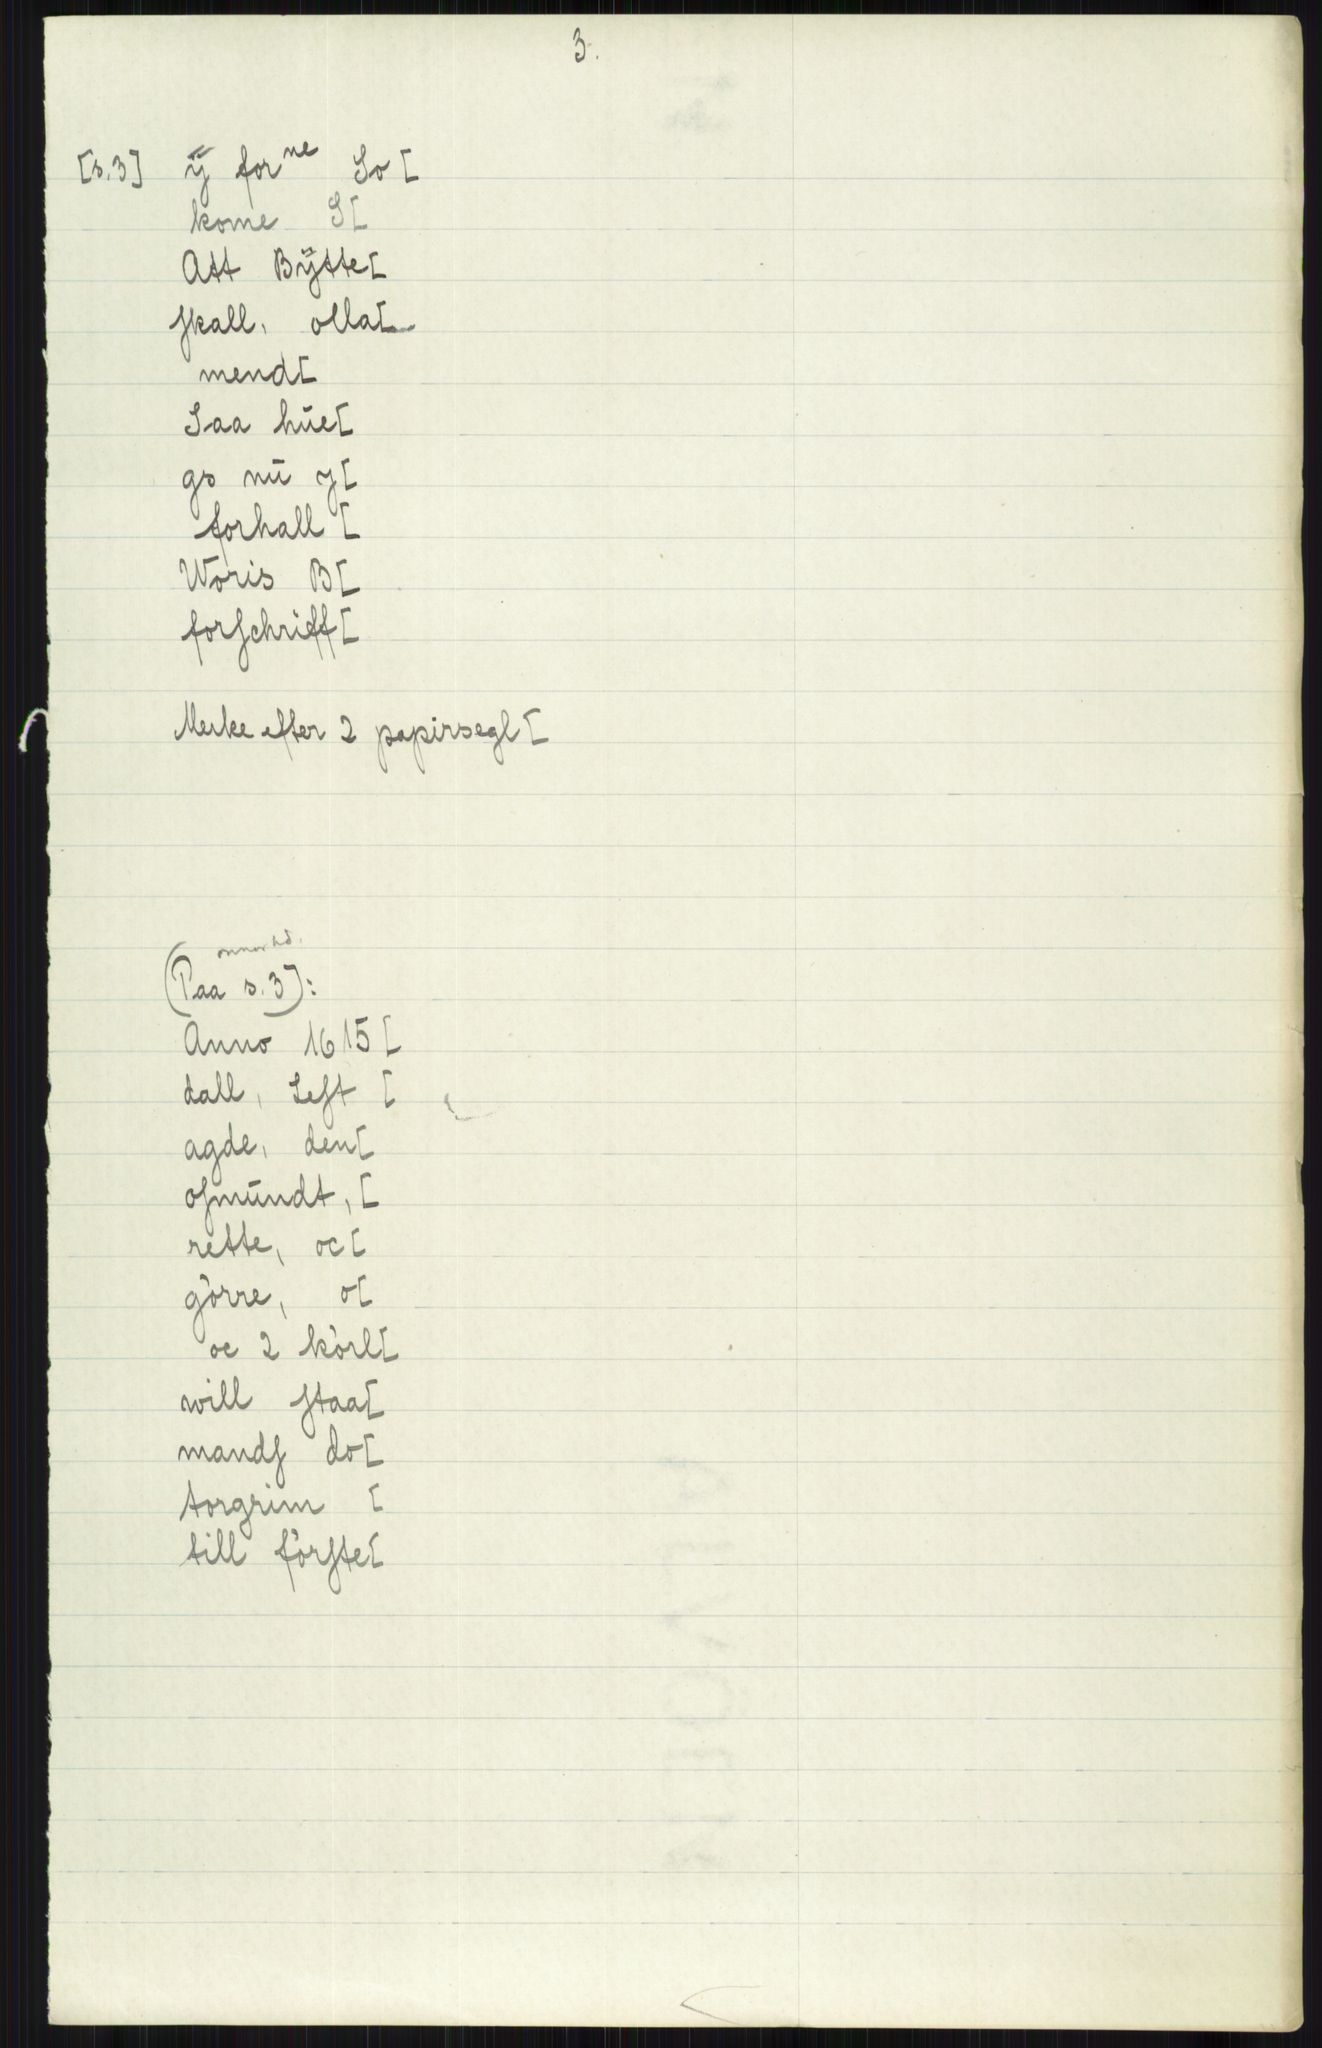 3.
[s. 3] ÿ for^ne So [
kome S[
Att Bÿtte[
ſkall, olla[
mend[
Saa hūe[
gs nū y[
forhall [
Woris B[
forſchriff[
Merke efter 2 papirsegl [
annor hd.
(Paa s. 3):
Anno 1615 [
dall, Seſt [
agde, den[
oſmūndt, [
rette, oc[
görre, o[
oc 2 körl[
will ſtaa[
mandſ do[
torgrim [
till förſte[